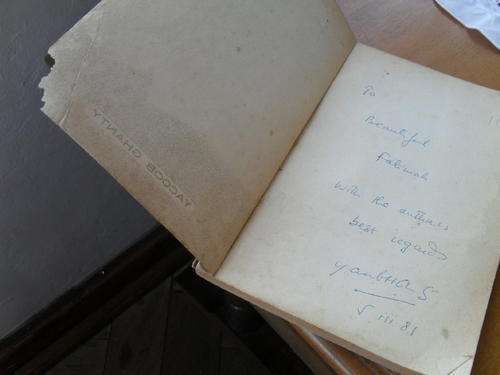 YACOOB GHANTY
To
Beautiful
Fatimah
With the author's
best regards
5.iii.81